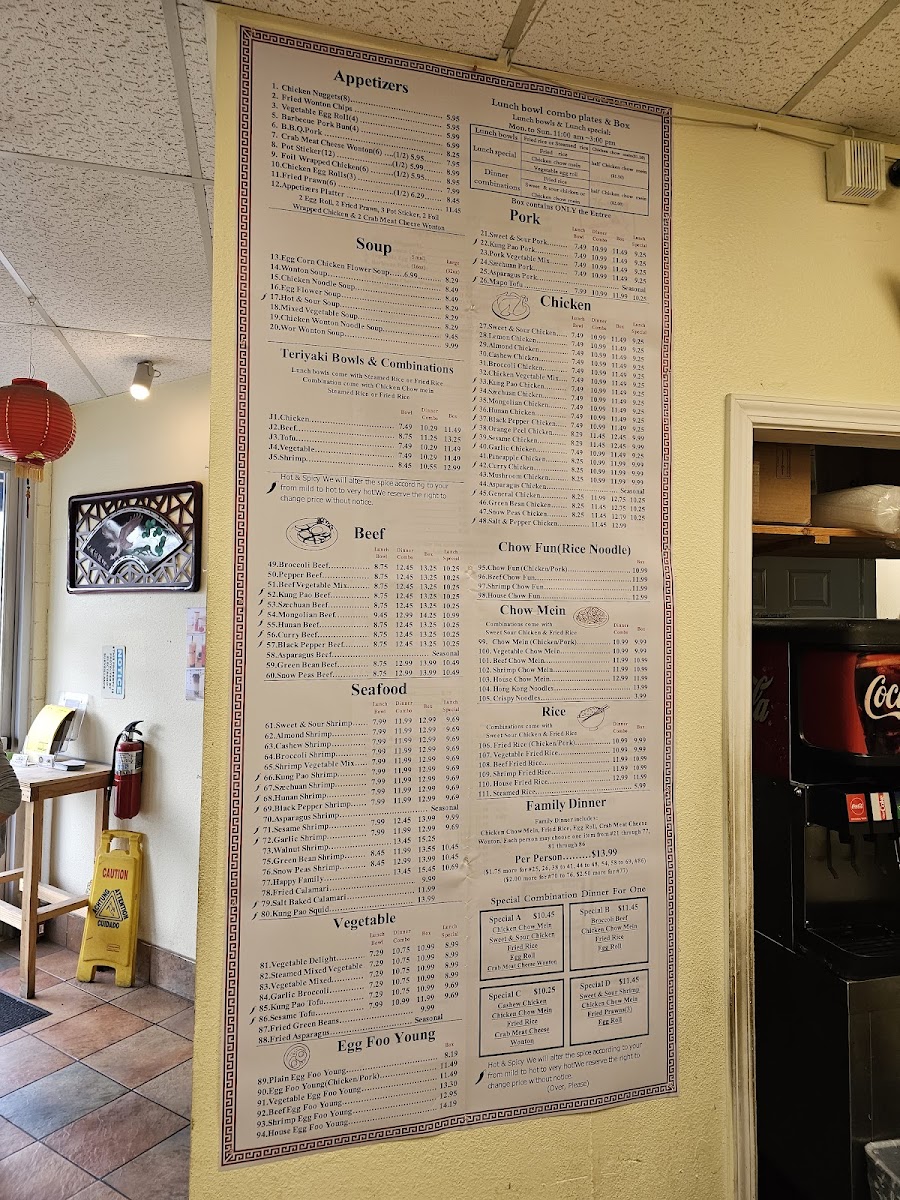 Appetizers
1. Chicken Nuggets(8)
2. Fried Wonton Chips 5.95
3. Vegetable Egg Roll(4) 5.95
5. Barbecue Pork Bun(4) 5.99
6. B.B.Q.Pork 6.99
7. Crab Meat Cheese Wonton(6) (1/2) 5.95 8.25
8. Pot Sticker(12) (1/2) 5.99
9. Foil Wrapped Chicken(6) (1/2) 5.95
10.Chicken Egg Rolls(3)
11.Fried Prawn(6) (1/2) 6.29
12.Appetizers Platter 11.45
2 Egg Roll, 2 Fried Prawn, 3 Pot Sticker, 2 Foil
Wrapped Chicken & 2 Crab Meat Cheese Wonton
Soup
13.Egg Corn Chicken Flower Soup 6.99 8.29
14.Wonton Soup 8.49
15.Chicken Noodle Soup 8.49
16.Egg Flower Soup 8.29
17.Hot & Sour Soup 8.29
18.Mixed Vegetable Soup 8.29
19.Chicken Wonton Noodle Soup 9.45
20.Wor Wonton Soup 9.99
Teriyaki Bowls & Combinations
Lunch bowl come with Steamed Rice or Fried Rice
Combination come with Chicken Chow mein
Steamed Rice or Fried Rice
Bowl Dinner Combo Box
J1.Chicken 7.49 10.29 11.49
J2.Beef 8.75 11.25 13.25
J3.Tofu 7.49 10.29 11.49
J4.Vegetable 7.49 10.29 11.49
J5.Shrimp 8.45 10.55 12.99
Hot & Spicy We will alter the spice according to your
from mild to hot to very hot!We reserve the right to
change price without notice.
Beef
Lunch Bowl Dinner Combo Box Lunch Special
49.Broccoli Beef 8.75 12.45 13.25 10.25
50.Pepper Beef 8.75 12.45 13.25 10.25
51.Beef Vegetable Mix 8.75 12.45 13.25 10.25
52.Kung Pao Beef 8.75 12.45 13.25 10.25
53.Szechuan Beef 8.75 12.45 13.25 10.25
54.Mongolian Beef 9.45 12.99 14.25 10.99
55.Hunan Beef 8.75 12.45 13.25 10.25
56.Curry Beef 8.75 12.45 13.25 10.25
57.Black Pepper Beef 8.75 12.45 13.25 10.25
58.Asparagus Beef Seasonal
59.Green Bean Beef 8.75 12.99 13.99 10.49
60.Snow Peas Beef 8.75 12.45 13.25 10.25
Seafood
Lunch Bowl Dinner Combo Box Lunch Special
61.Sweet & Sour Shrimp 7.99 11.99 12.99 9.69
62.Almond Shrimp 7.99 11.99 12.99 9.69
63.Cashew Shrimp 7.99 11.99 12.99 9.69
64.Broccoli Shrimp 7.99 11.99 12.99 9.69
65.Shrimp Vegetable Mix 7.99 11.99 12.99 9.69
66.Kung Pao Shrimp 7.99 11.99 12.99 9.69
67.Szechuan Shrimp 7.99 11.99 12.99 9.69
68.Hunan Shrimp 7.99 11.99 12.99 9.69
69.Black Pepper Shrimp 7.99 11.99 12.99 9.69
70.Asparagus Shrimp Seasonal
71.Sesame Shrimp 7.99 12.45 13.99 9.99
72.Garlic Shrimp 7.99 11.99 12.99 9.69
73.Walnut Shrimp 13.45 15.25
75.Green Bean Shrimp 8.45 11.99 13.55 10.45
76.Snow Peas Shrimp 8.45 12.99 13.99 10.45
77.Happy Family 13.45 15.45 10.69
78.Fried Calamari 9.99
79.Salt Baked Calamari 11.99
80.Kung Pao Squid 13.99
Vegetable
Lunch Bowl Dinner Combo Box Lunch Special
81.Vegetable Delight 7.29 10.75 10.99 8.99
82.Steamed Mixed Vegetable 7.29 10.75 10.99 8.99
83.Vegetable Mixed 7.29 10.75 10.99 8.99
84.Garlic Broccoli 7.29 10.75 10.99 8.99
85.Kung Pao Tofu 7.29 10.75 10.99 9.69
86.Sesame Tofu 7.99 10.99 11.99 9.69
87.Fried Green Beans 9.99
88.Fried Asparagus Seasonal
Egg Foo Young
Box
89.Plain Egg Foo Young 8.19
90.Egg Foo Young(Chicken,Pork) 11.49
91.Vegetable Egg Foo Young 11.49
92.Beef Egg Foo Young 13.30
93.Shrimp Egg Foo Young 12.95
94.House Egg Foo Young 14.19
Lunch bowl combo plates & Box
Lunch bowls & Lunch special:
Mon. to Sun. 11:00 am ~3:00 pm
Lunch bowls Fried rice or Steamed rice
Lunch special Fried rice
Chicken chow mein
Vegetable egg roll
half Chicken chow mein
Dinner combinations
Fried rice
Sweet & sour chicken or
Chicken chow mein
half Chicken chow mein
Box contains ONLY the Entree
Pork
Lunch Bowl Dinner Combo Box Lunch Special
21.Sweet & Sour Pork 7.49 10.99 11.49 9.25
22.Kung Pao Pork 7.49 10.99 11.49 9.25
23.Pork Vegetable Mix 7.49 10.99 11.49 9.25
24.Szechuan Pork 7.49 10.99 11.49 9.25
25.Asparagus Pork Seasonal
26.Mapo Tofu 7.99 10.99 11.99 10.25
Chicken
Lunch Bowl Dinner Combo Box Lunch Special
27.Sweet & Sour Chicken 7.49 10.99 11.49 9.25
28.Lemon Chicken 7.49 10.99 11.49 9.25
29.Almond Chicken 7.49 10.99 11.49 9.25
30.Cashew Chicken 7.49 10.99 11.49 9.25
31.Broccoli Chicken 7.49 10.99 11.49 9.25
32.Chicken Vegetable Mix 7.49 10.99 11.49 9.25
33.Kung Pao Chicken 7.49 10.99 11.49 9.25
34.Szechuan Chicken 7.49 10.99 11.49 9.25
35.Mongolian Chicken 7.49 10.99 11.49 9.25
36.Hunan Chicken 7.49 10.99 11.49 9.25
37.Black Pepper Chicken 7.49 10.99 11.49 9.25
38.Orange Peel Chicken 8.29 11.45 12.45 9.99
39.Sesame Chicken 8.29 11.45 12.45 9.99
40.Garlic Chicken 7.49 10.99 11.49
41.Pineapple Chicken 8.25 10.99 11.99 9.99
42.Curry Chicken 8.25 10.99 11.99 9.99
43.Mushroom Chicken 8.25 10.99 11.99 9.99
44.Asparagus Chicken Seasonal
45.General Chicken 8.25 11.99 12.75 10.25
46.Green Bean Chicken 8.25 11.45 12.75 10.25
47.Snow Peas Chicken 8.25 11.45 12.79 10.25
48.Salt & Pepper Chicken 11.45 12.99
Chow Fun(Rice Noodle)
Box
95.Chow Fun(Chicken/Pork) 10.99
96.Beef Chow Fun 11.99
97.Shrimp Chow Fun 11.99
98.House Chow Fun 12.99
Chow Mein
Combinations come with
Sweet Sour Chicken & Fried Rice
Dinner Combo Box
99. Chow Mein (Chicken/Pork) 10.99 9.99
100. Vegetable Chow Mein 10.99 9.99
101. Beef Chow Mein 11.99 10.99
102. Shrimp Chow Mein 11.99 10.99
103. House Chow Mein 12.99 11.99
104. Hong Kong Noodles 13.99
105. Crispy Noodles 3.99
Rice
Combinations come with
Sweet Sour Chicken & Fried Rice
Dinner Combo Box
106. Fried Rice (Chicken/Pork) 10.99 9.99
107. Vegetable Fried Rice 10.99 9.99
108. Beef Fried Rice 11.99 10.99
109. Shrimp Fried Rice 11.99 10.99
110. House Fried Rice 12.99 11.99
111. Steamed Rice 5.99
Family Dinner
Family Dinner includes:
Chicken Chow Mein, Fried Rice, Egg Roll, Crab Meat Cheese
Wonton. Each person may choose one item from #21 through 77,
81 through 86
Per Person.........$13.99
Special Combination Dinner For One
Special A $10.45
Chicken Chow Mein
Sweet & Sour Chicken
Fried Rice
Egg Roll
Crab Meat Cheese Wonton
Special B $11.45
Broccoli Beef
Chicken Chow Mein
Fried Rice
Egg Roll
Special C $10.25
Cashew Chicken
Chicken Chow Mein
Fried Rice
Crab Meat Cheese
Wonton
Special D $11.45
Sweet & Sour Shrimp
Chicken Chow Mein
Fried Prawns(3)
Egg Roll
Hot & Spicy We will alter the spice according to your
from mild to hot to very hot!We reserve the right to
change price without notice.
(Over, Please)
NOTICE
CAUTION
ACHTUNG
ATTENTION
CUIDADO
Coca